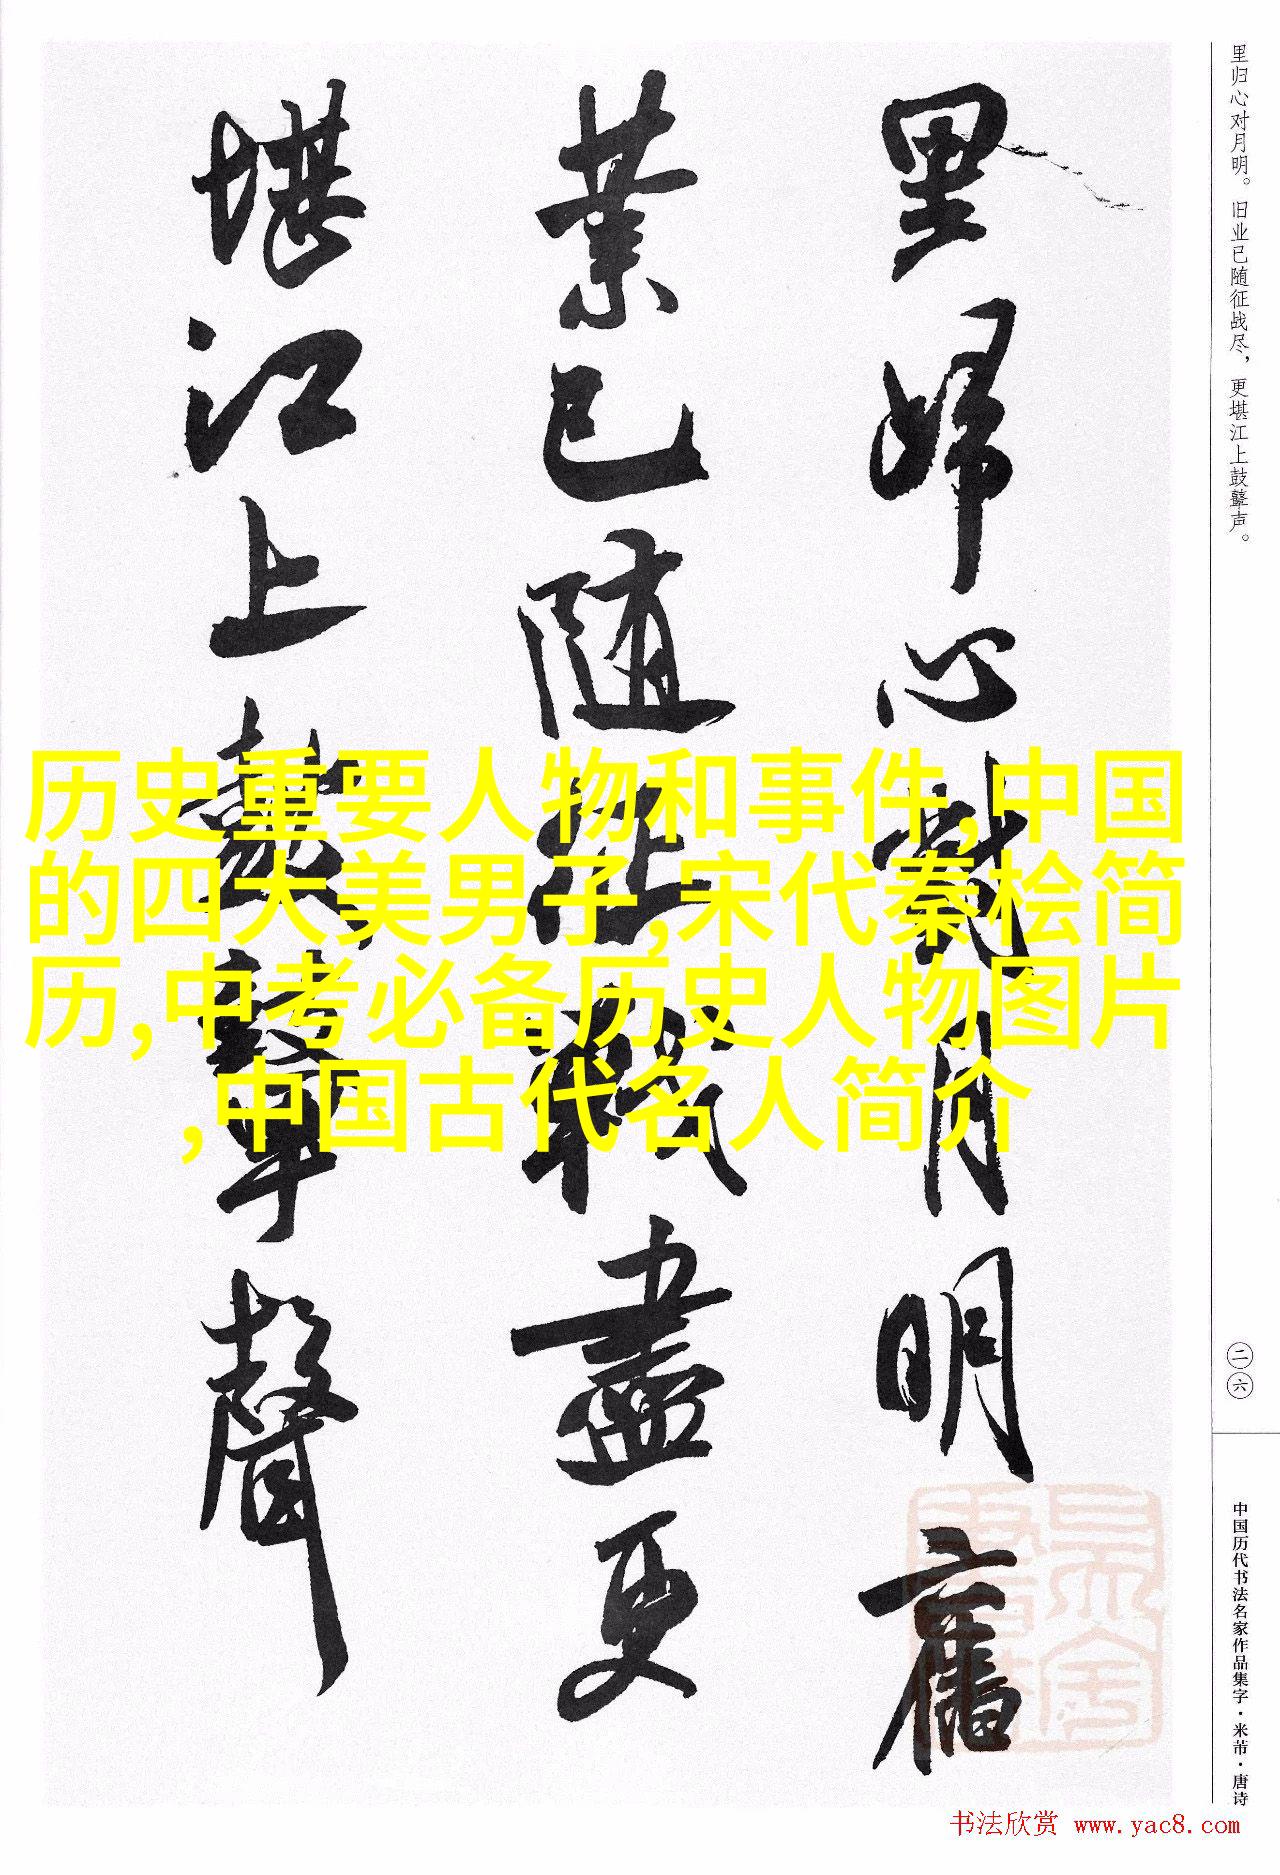 里归心对月明。旧业已随征战尽，更堪江上鼓鼙声。
里歸心對月明舊
業已隨征戰盡更
堪江上鼓鼙聲
历史重要人物和事件,中国
的四大美男子,宋代秦桧简
历,中考必备历史人物图片
,中国古代名人简介
二六
中国历代书法名家作品集字·米芾·唐诗
书法欣赏 www.yac8.com